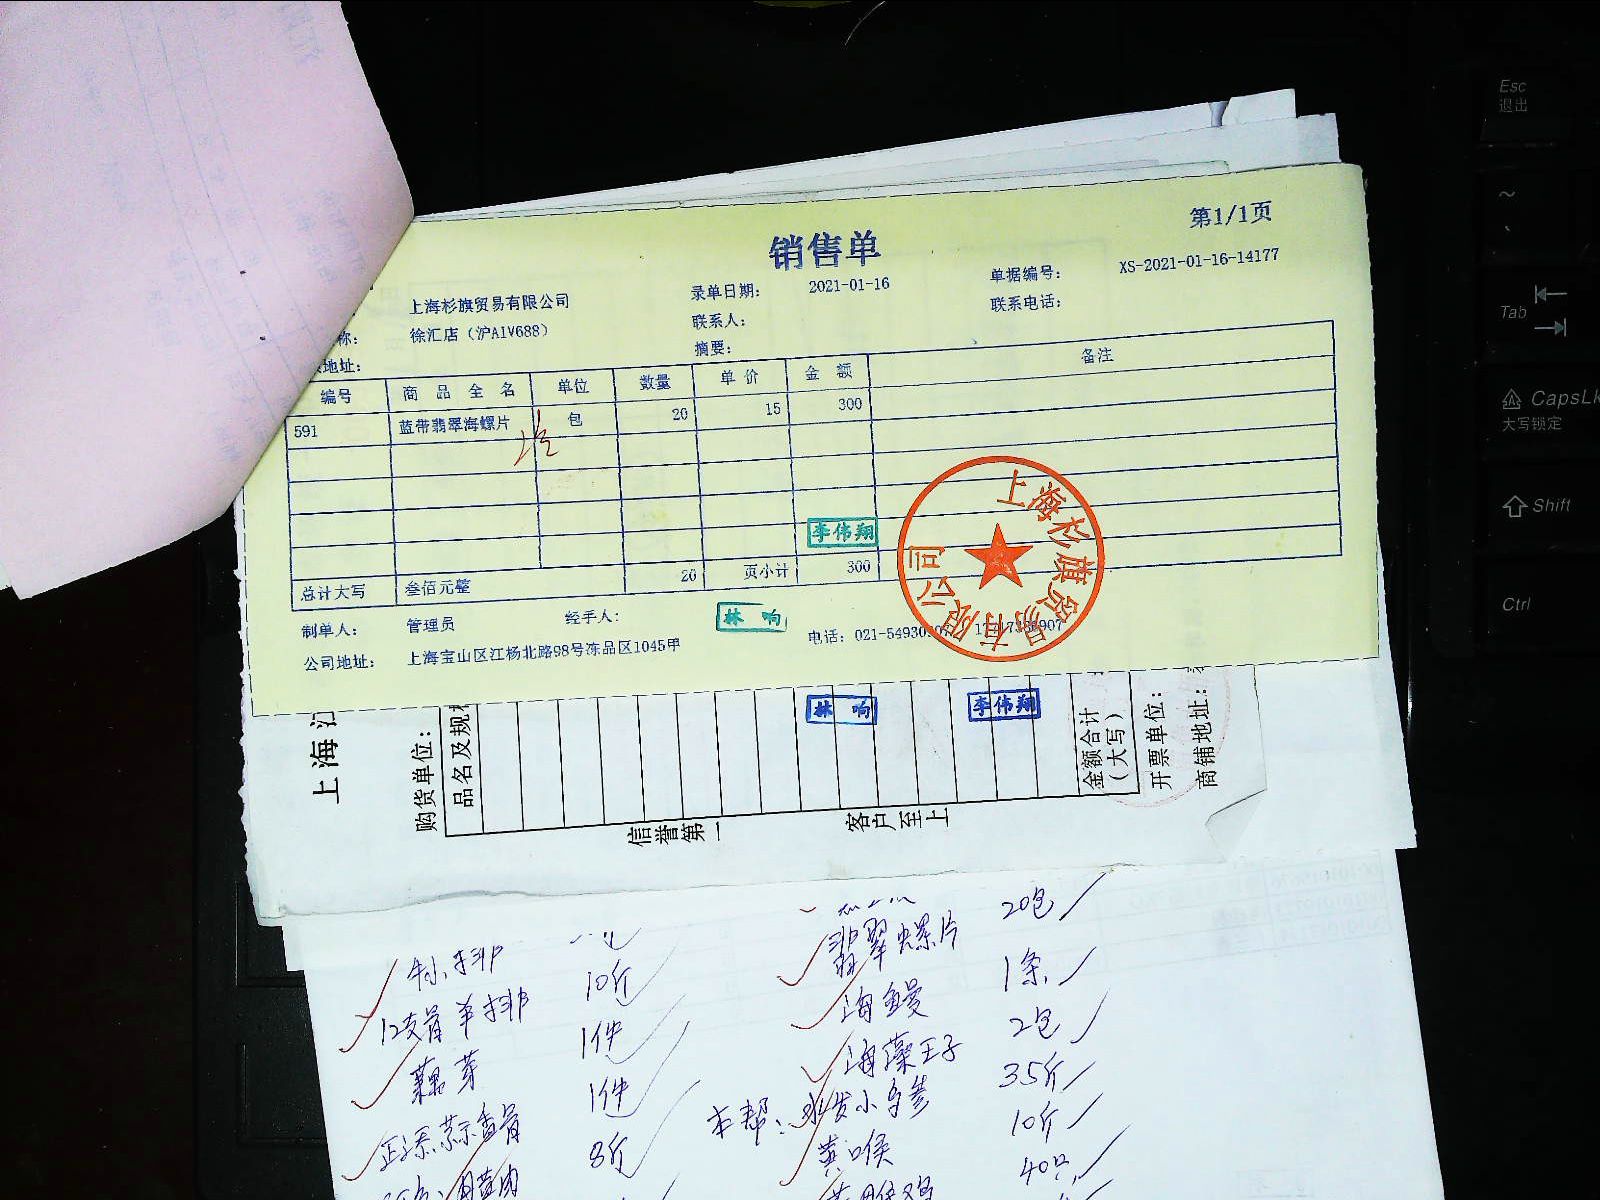 第1/1页
销售单
上海杉旗贸易有限公司 录单日期: 2021-01-16 单据编号: XS-2021-01-16-14177
称: 徐汇店（沪A1V688） 联系人: 联系电话:
地址: 摘要:
编号 商品全名 单位 数量 单价 金额 备注
591 蓝带翡翠海螺片 包 20 15 300
李伟翔
总计大写 叁佰元整 20 页小计 300
制单人: 管理员 经手人: 林 响 电话: 021-54930
公司地址: 上海宝山区江杨北路98号冻品区1045甲
上海杉旗贸易有限公司
上海江
购货单位:
品名及规格
信誉第一
客户至上
林 响
李伟翔
金额合计
（大写）
开票单位:
商铺地址:
10斤
12支骨羊排 1件
藕芽 1件
8斤
20包
翡翠螺片 1条
海鳗 2包
海藻王子 35斤
本帮: 水发小乌参 10斤
黄喉 40只